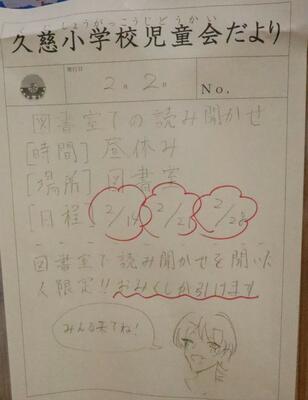 くじしょうがっこうじどうかい
久慈小学校児童会だより
発行日
2月 2日
No.
図書室での読み聞かせ
[時間] 昼休み
[場所] 図書室
[日程] 2/14 2/21 2/28
図書室で読み聞かせを聞いた
人限定!! おみくじが引けます
みんな来てね!